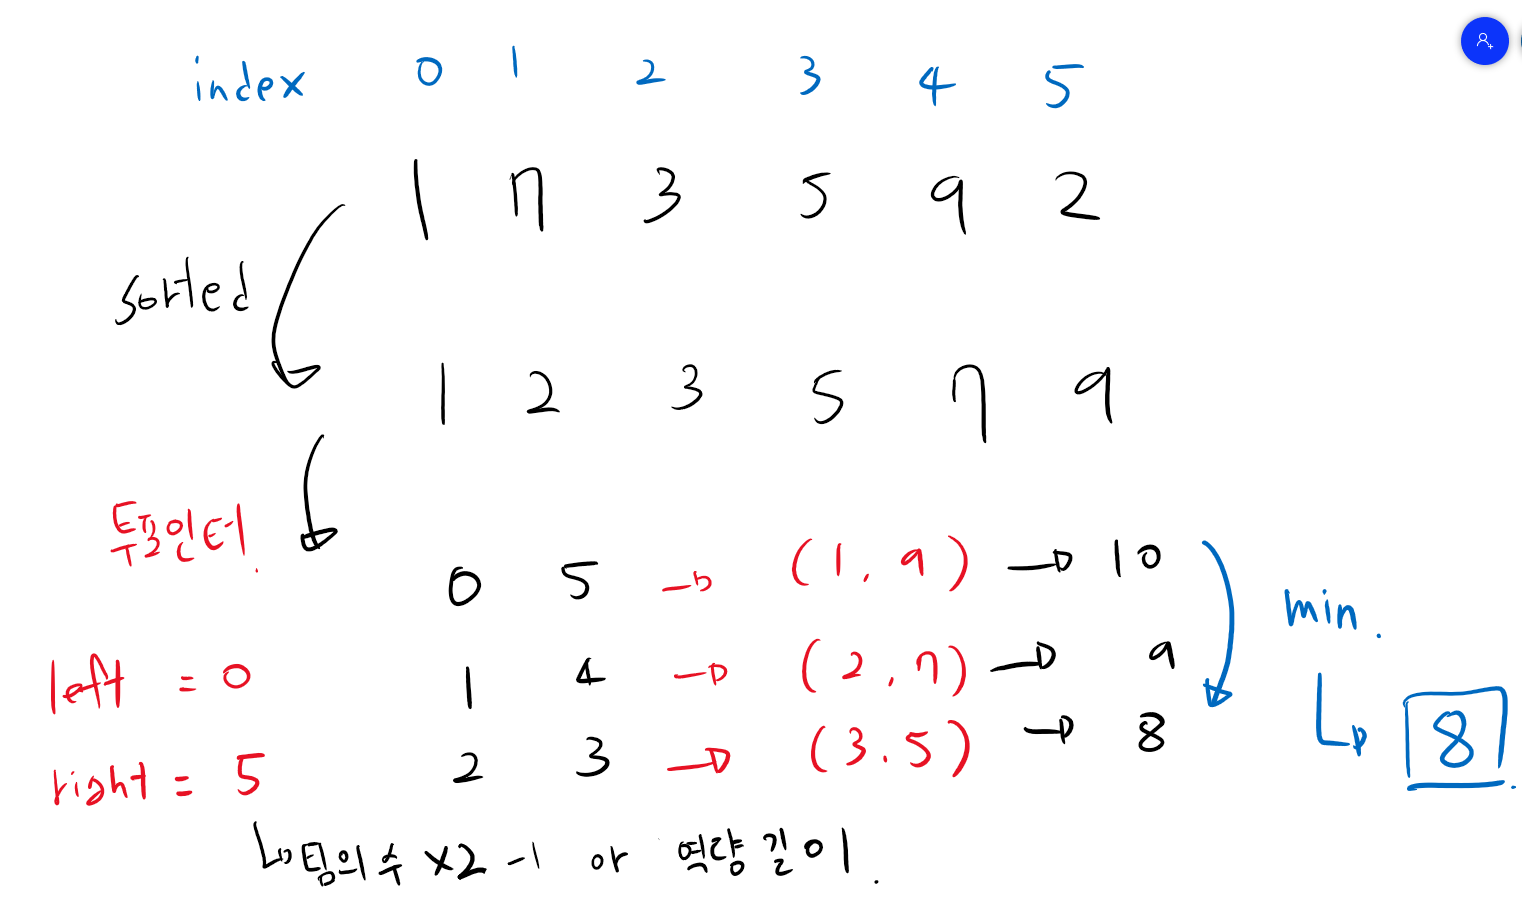 index 0 1 2 3 4 5
1 7 3 5 9 2
sorted
1 2 3 5 7 9
투포인터.
0 5 → (1, 9) → 10
min.
left = 0 1 4 → (2, 7) → 9
right = 5 2 3 → (3.5) → 8
8
↳ 팀의 수 x2 -1 or 역량 길이.